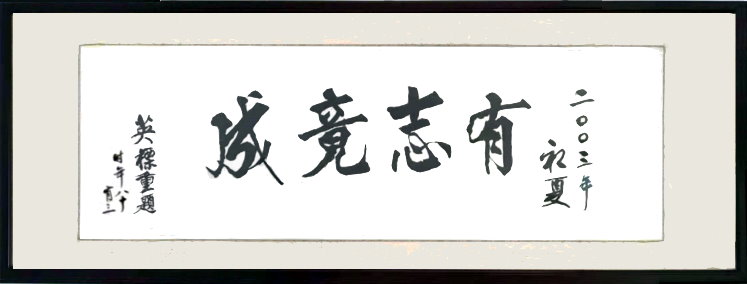 二〇〇三年
初夏
有志竟成
英標重題
时年八十
有三